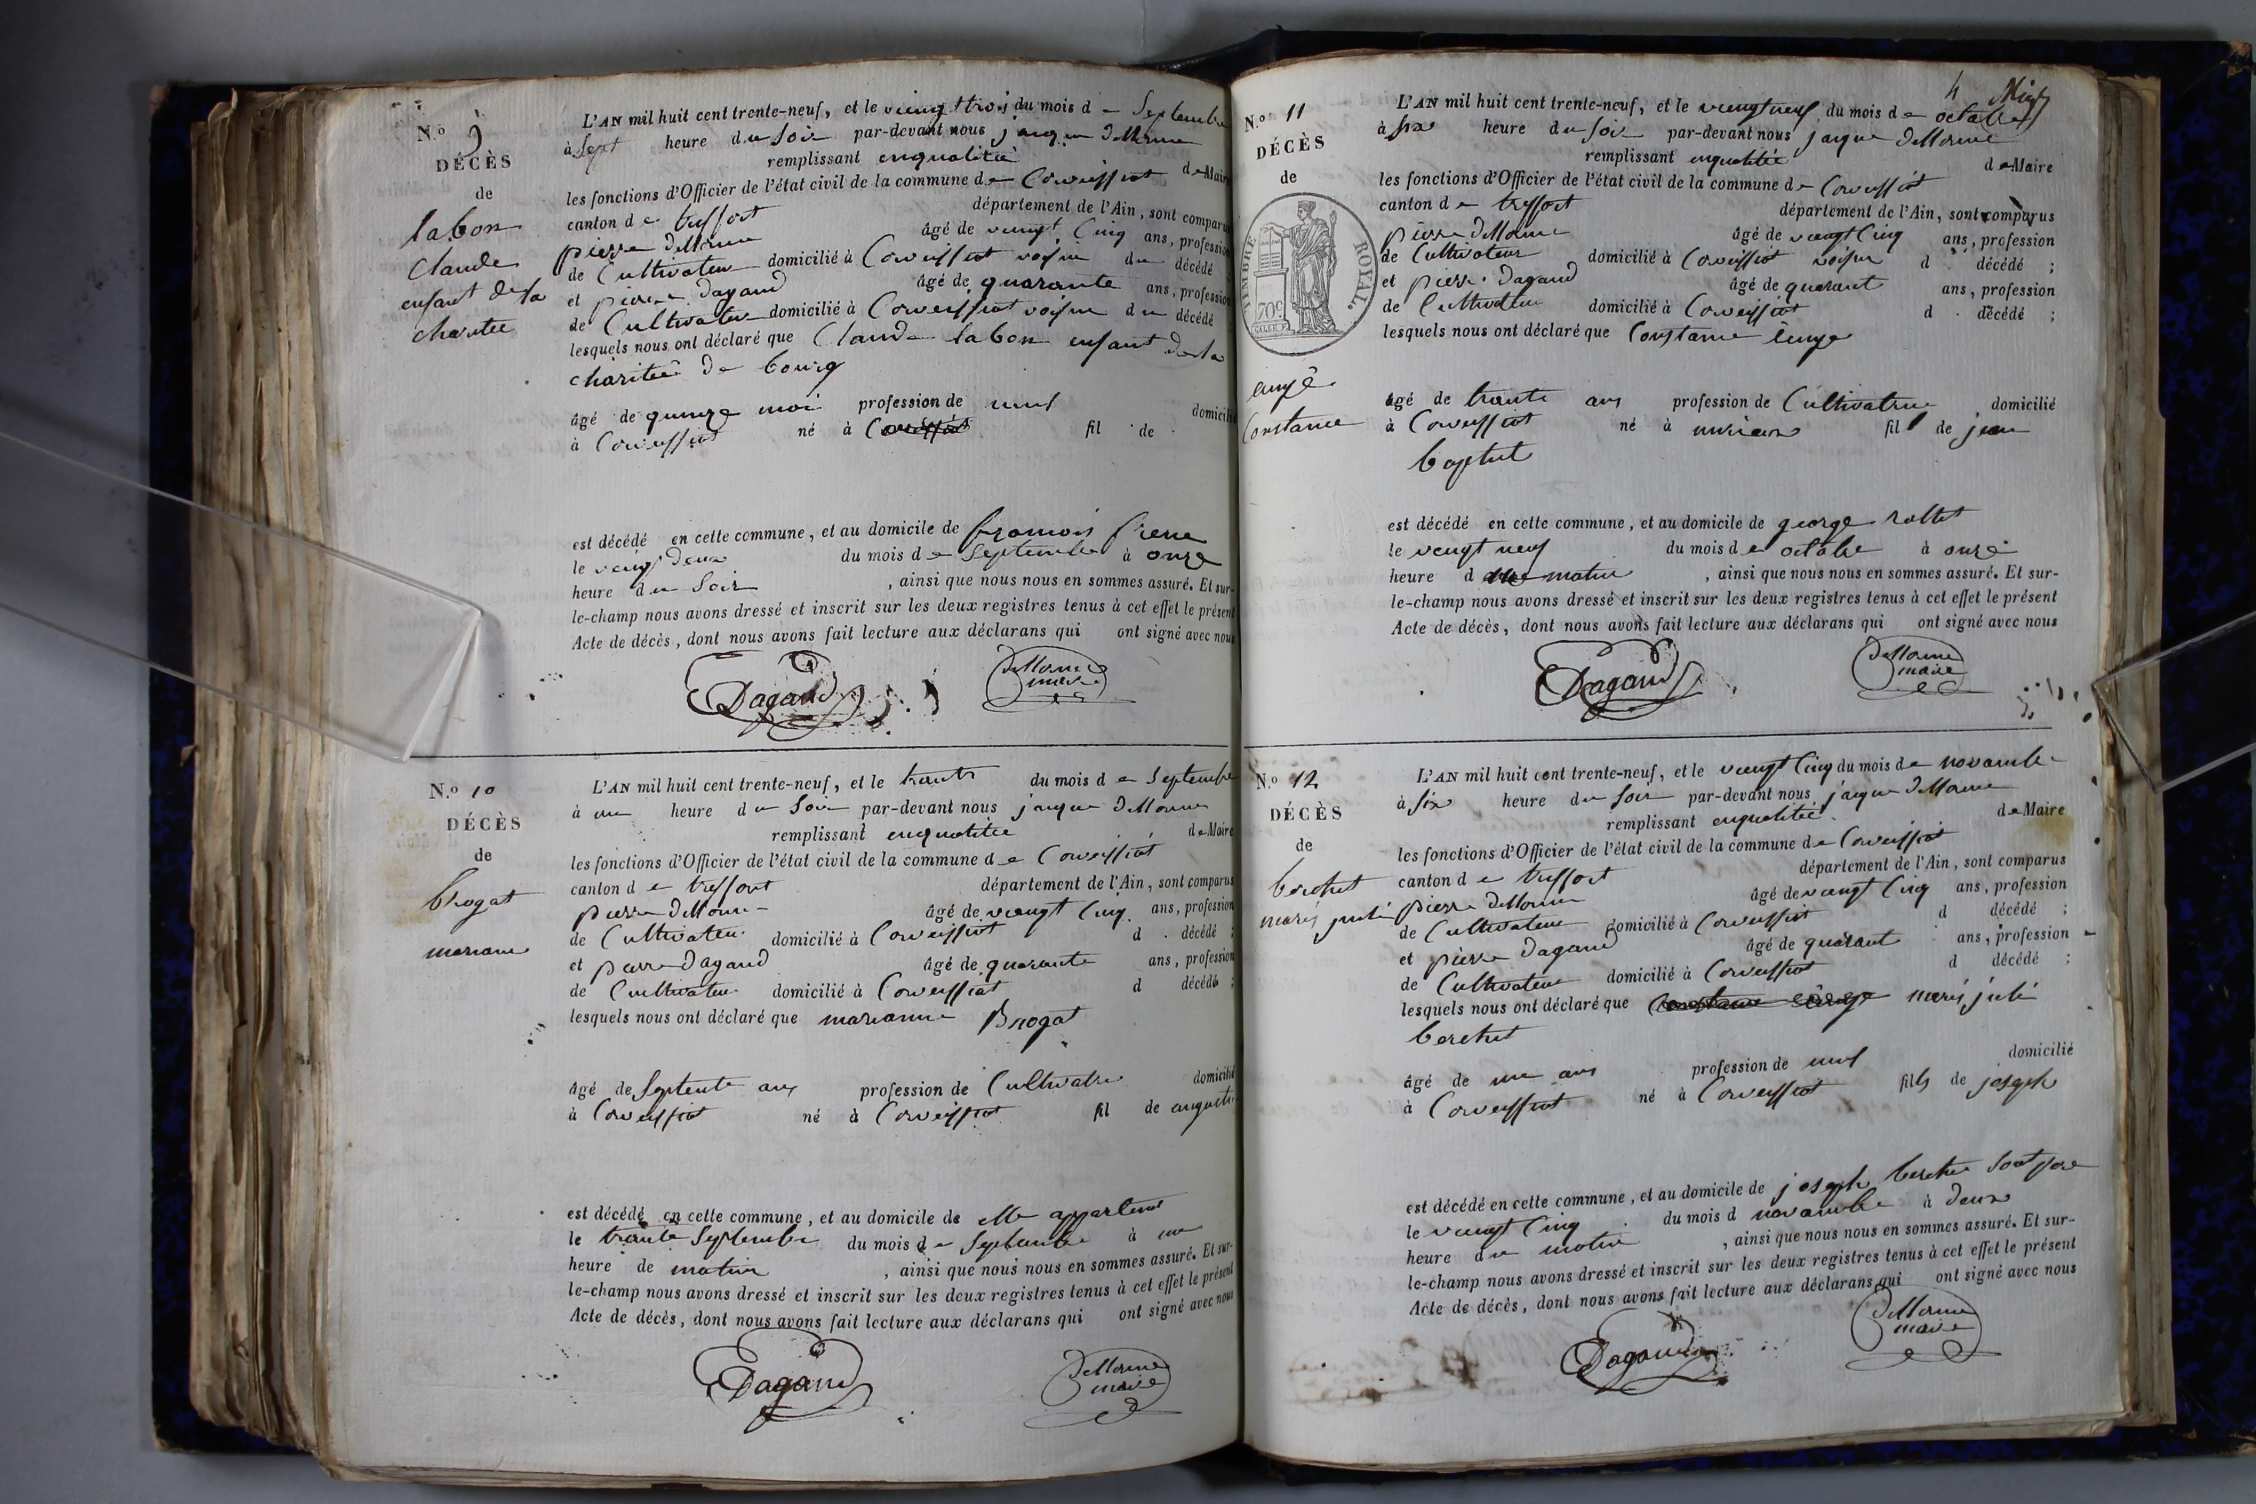 N.o 9
DÉCÈS
de
labon
Claude
enfant de la
charitee
L'AN mil huit cent trente-neuf, et le vieng ttrois du mois d e Septembre
à Sept heure du Soir par-devant nous jaque
remplissant enqualitée de Maire
les fonctions d'Officier de l'état civil de la commune de Corveissiat
canton de treffort département de l'Ain, sont comparus
pierre âgé de veingt Cinq ans, profession
de Cultivateur domicilié à Corveissiat voisin du décédé
et pierre Dagand âgé de quarante ans, profession
de Cultivateur domicilié à Corveissiat voisin du décédé
lesquels nous ont déclaré que Claude labon enfant de la
charitee de bourg
âgé de quinze moi profession de domicilié
à Corveissiat né à fil de
est décédé en cette commune, et au domicile de francois
le veingt deux du mois de Septembre à onze
heure du Soir , ainsi que nous nous en sommes assuré. Et sur-
le-champ nous avons dressé et inscrit sur les deux registres tenus à cet effet le présent
Acte de décès, dont nous avons fait lecture aux déclarans qui ont signé avec nous
Dagand
maire
N.o 10
DÉCÈS
de
brogat
mariane
L'AN mil huit cent trente-neuf, et le trante du mois de Septembre
à une heure du Soir par-devant nous jaque
remplissant enqualitée de Maire
les fonctions d'Officier de l'état civil de la commune de Corveissiat
canton de treffort département de l'Ain, sont comparus
pierre âgé de veingt Cinq ans, profession
de Cultivateur domicilié à Corveissiat d décédé ;
et pierre Dagand âgé de quarante ans, profession
de Cultivateur domicilié à Corveissiat d décédé ;
lesquels nous ont déclaré que marianne Brogat
âgé de Septente ans profession de Cultivatri domicilié
à Corveissiat né à Corveissiat fil de
est décédé en cette commune, et au domicile de elle appartenant
le trante Septembre du mois de Septembre à une
heure de matin , ainsi que nous nous en sommes assuré. Et sur-
le-champ nous avons dressé et inscrit sur les deux registres tenus à cet effet le présent
Acte de décès, dont nous avons fait lecture aux déclarans qui ont signé avec nous
Dagand
maire
4
N.o 11
DÉCÈS
de
TIMBRE ROYAL.
70c
Constance
L'AN mil huit cent trente-neuf, et le veengt neuf du mois de octobre
à six heure du Soir par-devant nous jaque
remplissant enqualitée de Maire
les fonctions d'Officier de l'état civil de la commune de Corveissiat
canton de treffort département de l'Ain, sont comparus
pierre âgé de veengt Cinq ans, profession
de Cultivateur domicilié à Corveissiat voisin d décédé ;
et pierre Dagand âgé de quarant ans, profession
de Cultivateur domicilié à Corveissiat d décédé ;
lesquels nous ont déclaré que Constance
âgé de trante ans profession de Cultivatrice domicilié
à Corveissiat né à fil de jean
baptist
est décédé en cette commune, et au domicile de george rollet
le veengt neuf du mois de octobre à onze
heure d matin , ainsi que nous nous en sommes assuré. Et sur-
le-champ nous avons dressé et inscrit sur les deux registres tenus à cet effet le présent
Acte de décès, dont nous avons fait lecture aux déclarans qui ont signé avec nous
Dagand
maire
N.o 12
DÉCÈS
de
berchet
L'AN mil huit cent trente-neuf, et le veengt Cinq du mois de novambre
à six heure du Soir par-devant nous jaque
remplissant enqualitée de Maire
les fonctions d'Officier de l'état civil de la commune de Corveissiat
canton de treffort département de l'Ain, sont comparus
pierre âgé de veengt Cinq ans, profession
de Cultivateur domicilié à Corveissiat d décédé ;
et pierre Dagand âgé de quarant ans, profession
de Cultivateur domicilié à Corveissiat d décédé ;
lesquels nous ont déclaré que
berchet
âgé de une ans profession de domicilié
à Corveissiat né à Corveissiat fils de joseph
est décédé en cette commune, et au domicile de joseph
le veengt Cinq du mois d novambre à deux
heure du matin , ainsi que nous nous en sommes assuré. Et sur-
le-champ nous avons dressé et inscrit sur les deux registres tenus à cet effet le présent
Acte de décès, dont nous avons fait lecture aux déclarans qui ont signé avec nous
Dagand
maire